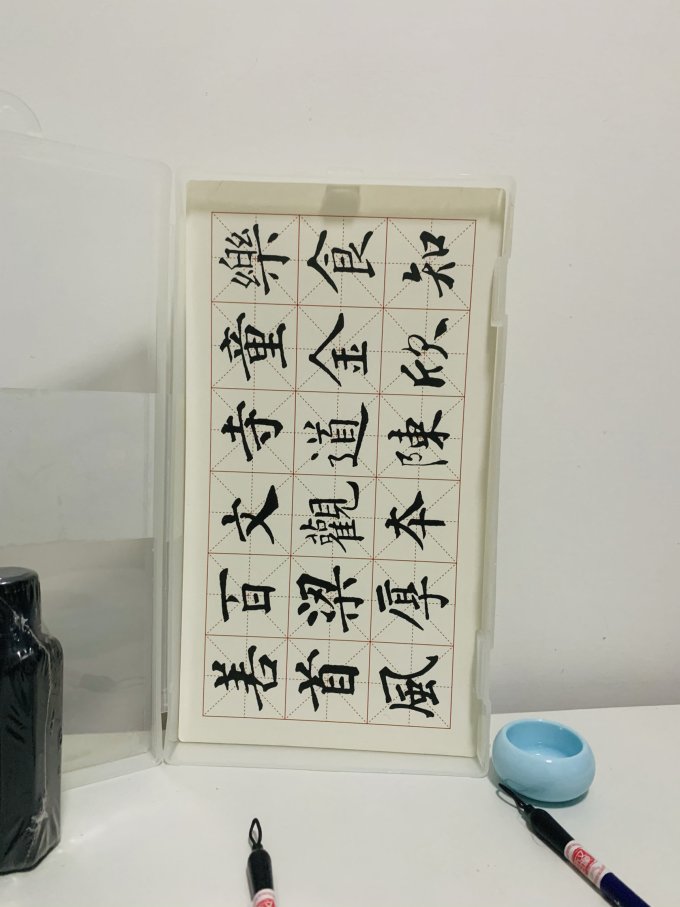 善百文寺童樂
首梁觀道金食
風厚本陳欣知